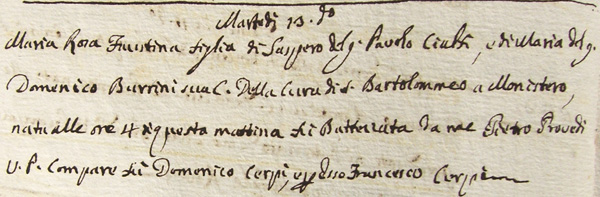 Martedì 13. do
Maria Rosa Faustina figlia di Gasppero del q. Pavolo Ciulli, e di Maria del q.
Domenico Burrini sua C. Della Cura di S. Bartolommeo a Monistero,
nata alle ore 4 di questa mattina fù Battezzata da me Pietro Provedi
V. P. Compare fù Domenico Cerpi, e p Esso Francesco Cerpi